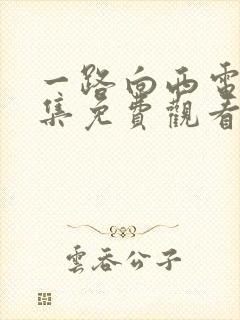 一路向西電
集免費觀看
雲吞公子